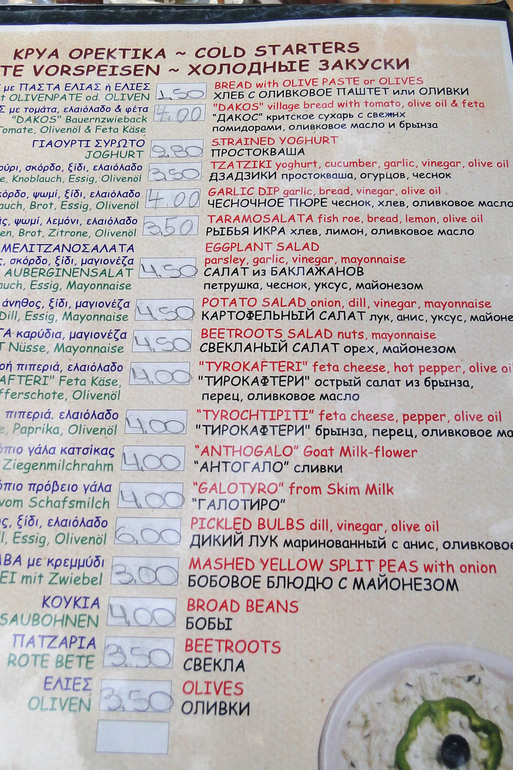 ΚΡΥΑ ΟΡΕΚΤΙΚΑ ~ COLD STARTERS
VORSPEISEN ~ ХОЛОДНЫЕ ЗАКУСКИ
με ΠΑΣΤΑ ΕΛΙΑΣ ή ΕΛΙΕΣ 1,50 BREAD with OLIVE PASTE or OLIVES
OLIVENPATE od. OLIVEN ХЛЕБ С ОЛИВКОВЫЙ ПАШТЕТ или ОЛИВКИ
με τομάτα, ελαιόλαδο & φέτα 4,00 "DAKOS" village bread with tomato, olive oil & feta
"DAKOS" Bauernzwieback "ДАКОС" критское сухарь с свежнх
Tomate, Olivenöl & Feta Käse помидорами, оливковое масло и брынза
ΓΙΑΟΥΡΤΙ ΣΥΡΩΤΟ STRAINED YOGHURT
JOGHURT ПРОСТОКВАША
σκόρδο, ξίδι, ελαιόλαδο 3,50 TZATZIKI yoghurt, cucumber, garlic, vinegar, olive oil
Knoblauch, Essig, Olivenöl ДЗАДЗИКИ простокваша, огурцов, чеснок
ψωμί, ξίδι, ελαιόλαδο 4,00 GARLIC DIP garlic, bread, vinegar, olive oil
Brot, Essig, Olivenöl ЧЕСНОЧНОЕ ПЮРЕ чеснок, хлеб, оливковое масло
ψωμί, λεμόνι, ελαιόλαδο 3,50 TARAMOSALATA fish roe, bread, lemon, olive oil
Brot, Zitrone, Olivenöl РЫБЬЯ ИКРА хлеб, лимон, оливковое масло
ΜΕΛΙΤΖΑΝΟΣΑΛΑΤΑ EGGPLANT SALAD
σκόρδο, ξίδι, μαγιονέζα 4,50 parsley, garlic, vinegar, mayonnaise
AUBERGINENSALAT САЛАТ из БАКЛАЖАНОВ
Essig, Mayonnaise петрушка, чеснок, уксус, майонезом
άνηθος, ξίδι, μαγιονέζα 4,50 POTATO SALAD onion, dill, vinegar, mayonnaise
Dill, Essig, Mayonnaise КАРТОФЕЛЬНЫЙ САЛАТ лук, анис, уксус,
καρύδια, μαγιονέζα 4,50 BEETROOTS SALAD nuts, mayonnaise
Nüsse, Mayonnaise СВЕКЛАНЫЙ САЛАТ орех, майонезом
πιπεριά, ελαιόλαδο 4,00 "TYROKAFTERI" feta cheese, hot pepper, olive oil
Feta Käse, "ТИРОКАФТЕРИ" острый салат из брынза,
Olivenöl перец, оливковое масло
πιπεριά. ελαιόλαδο 4,00 "TYROCHTIPITI" feta cheese, pepper, olive oil
Paprika, Olivenöl "ТИРОКАФТЕРИ" брынза, перец, оливковое
γάλα κατσίκας 4,00 "ANTHOGALO" Goat Milk-flower
Ziegenmilchrahm "АНТОГАЛО" сливки
πρόβειο γάλα 4,00 "GALOTYRO" from Skim Milk
vom Schafsmilch "ГАЛОТИРО"
ξίδι, ελαιόλαδο 6,00 PICKLED BULBS dill, vinegar, olive oil
Essig, Olivenöl ДИКИЙ ЛУК маринованный с анис, оливковое
με κρεμμύδι 3,00 MASHED YELLOW SPLIT PEAS with onion
mit Zwiebel БОБОВОЕ БЛЮДО С МАЙОНЕЗОМ
ΚΟΥΚΙΑ 4,00 BROAD BEANS
SAUBOHNEN БОБЫ
ΠΑΤΖΑΡΙΑ 3,50 BEETROOTS
ROTE BETE СВЕКЛА
ΕΛΙΕΣ 3,50 OLIVES
OLIVEN ОЛИВКИ